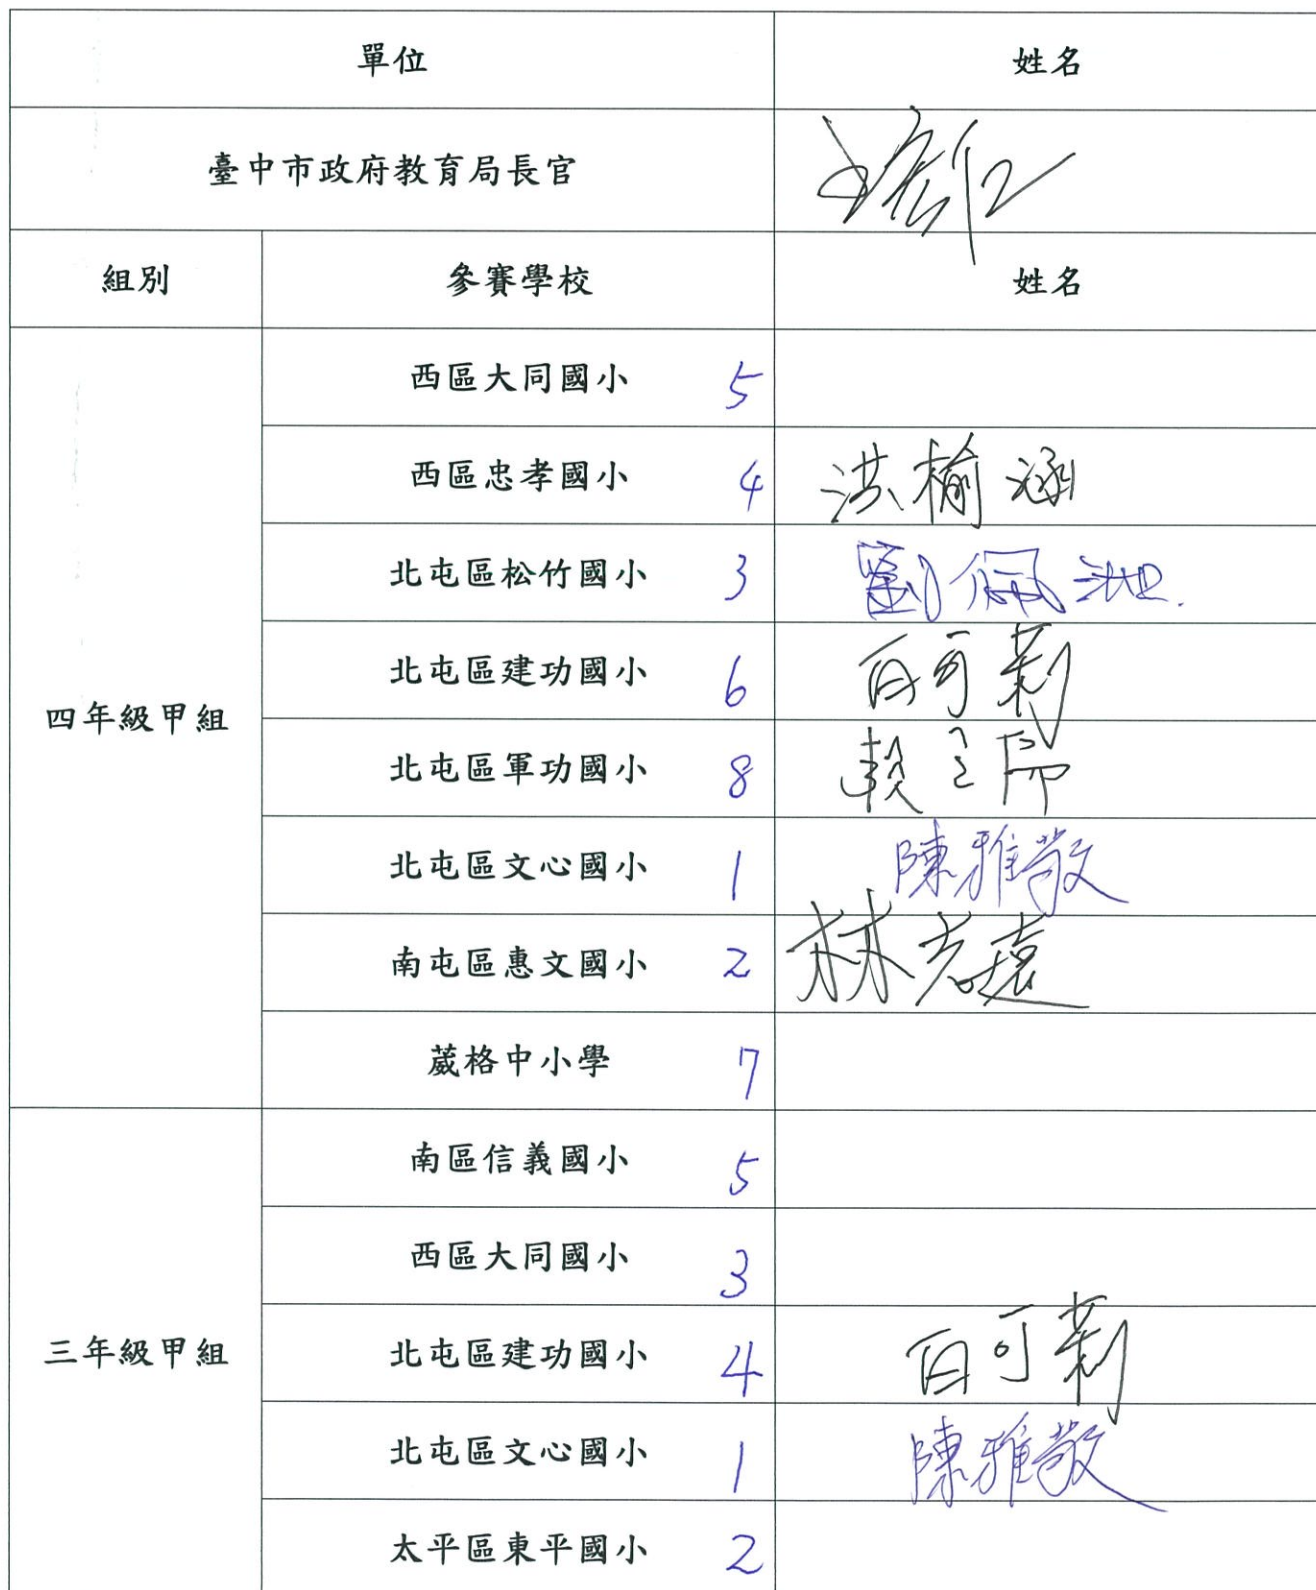 單位 姓名
臺中市政府教育局長官
組別 參賽學校 姓名
四年級甲組
西區大同國小 5
西區忠孝國小 4 洪榆涵
北屯區松竹國小 3 劉佩
北屯區建功國小 6 白可莉
北屯區軍功國小 8 賴
北屯區文心國小 1 陳雅敬
南屯區惠文國小 2 林志遠
葳格中小學 7
三年級甲組
南區信義國小 5
西區大同國小 3
北屯區建功國小 4 白可莉
北屯區文心國小 1 陳雅敬
太平區東平國小 2